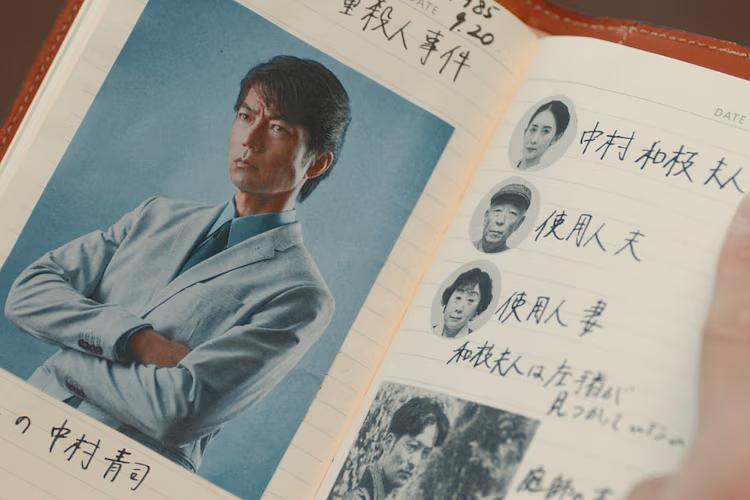 DATE
'85
9.20
重殺人事件
の 中村青司
DATE
中村 和枝 夫人
使用人 夫
使用人 妻
和枝夫人は左手首が
見つかって いない
庭師の